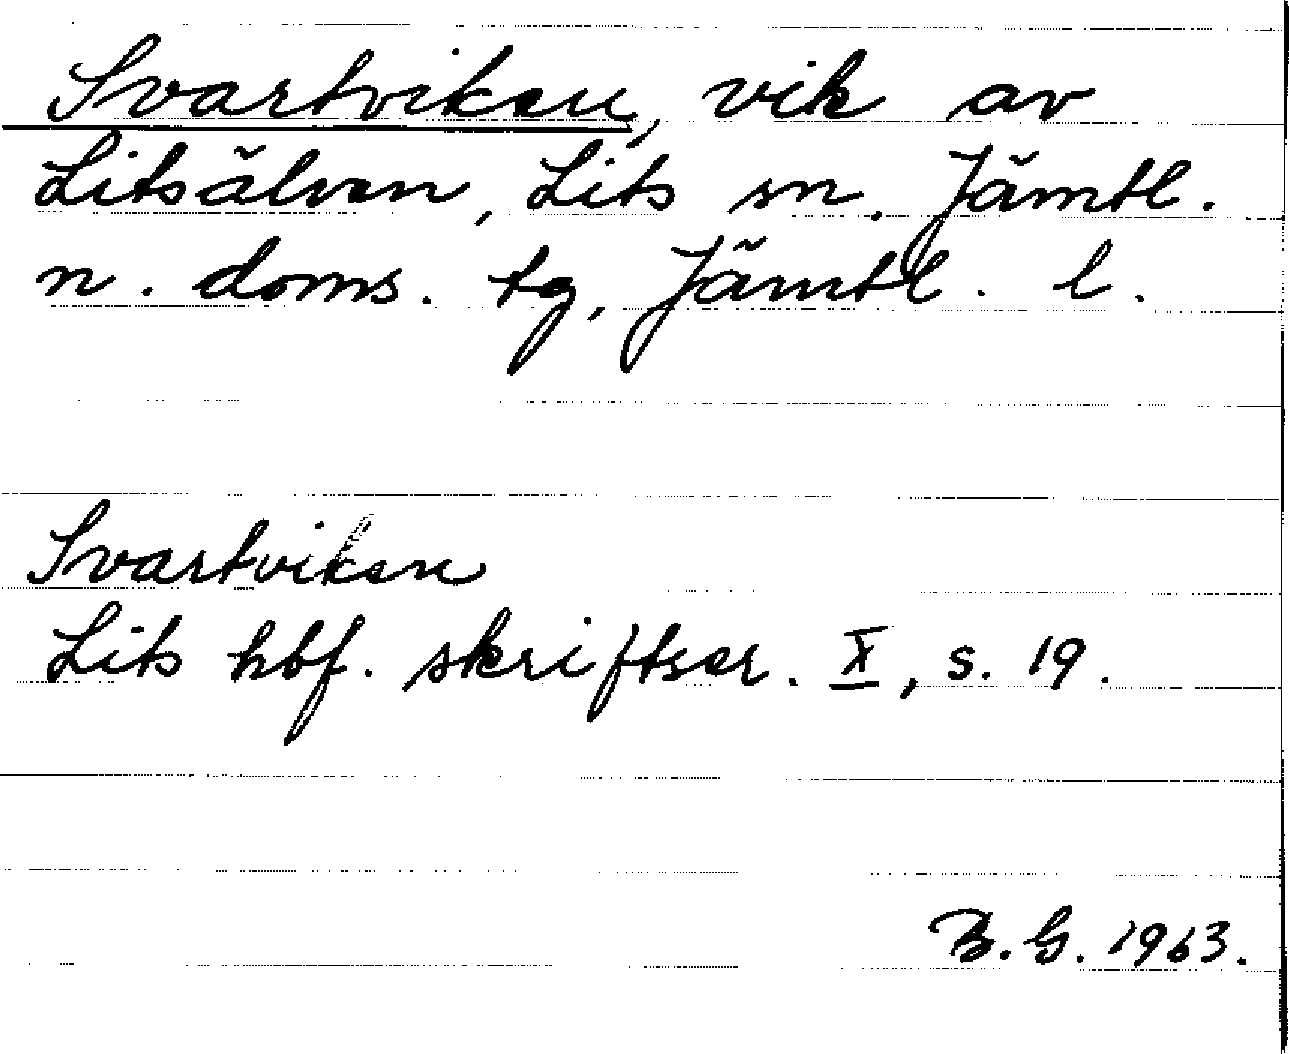 Svartviken, vik av
Litsälven, Lits sn. Jämtl.
n. doms. tg, Jämtl. l.
Svartviken
Lits hbf. skriftser. X, s. 19.
B.G. 1963.